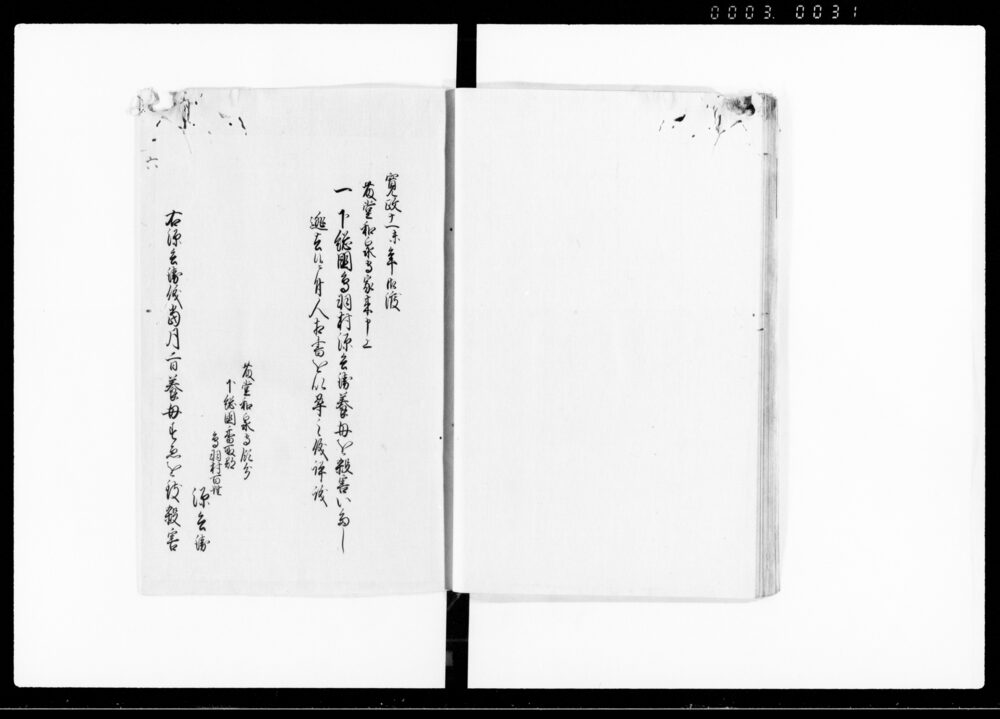 0003 0031
寛政十一未年御渡
藤堂和泉守家来申上
一 下総国鳥羽村源兵衛養母を殺害いたし
逃去候ニ付人相書を以尋之儀評議
藤堂和泉守領分
下総国香取郡
鳥羽村百姓
源兵衛
右源兵衛儀当月二日養母を殺害
六